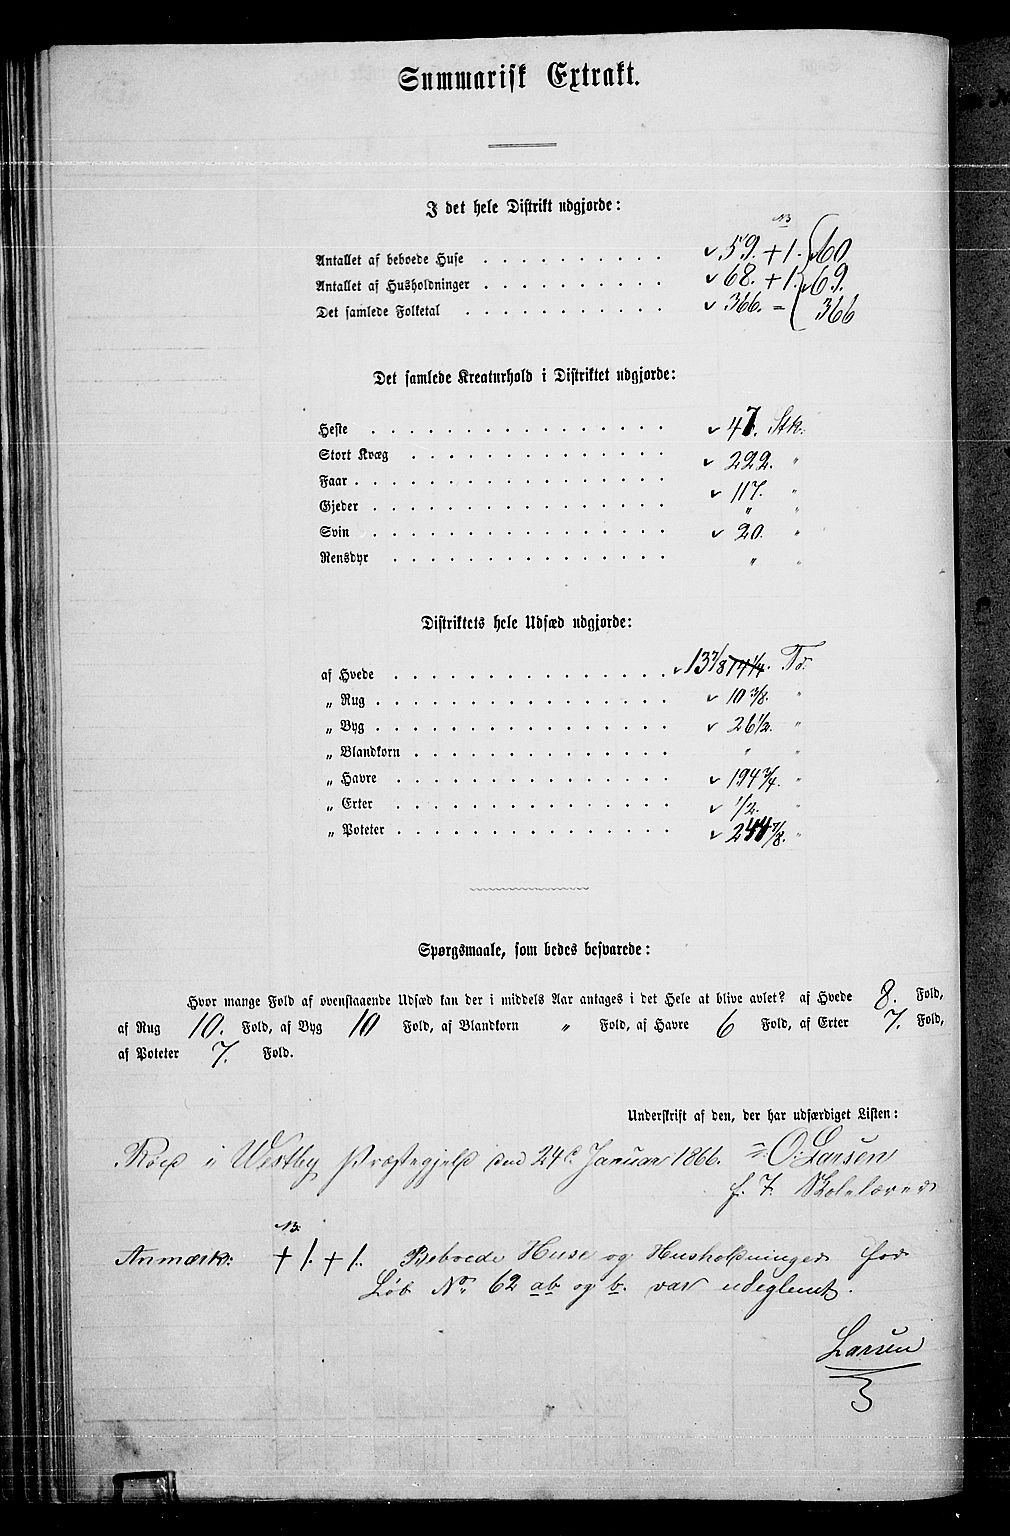 Summarisk Extrakt.
I det hele Distrikt udgjorde:
NB
Antallet af beboede Huse . . . . . . . . . . 59. + 1. 60
Antallet af Husholdninger . . . . . . . . . . 68. + 1. 69.
Det samlede Folketal . . . . . . . . . . . 366. = 366
Det samlede Kreaturhold i Distriktet udgjorde:
Heste . . . . . . . . . . . . . . . . 47. Stk.
Stort Kvæg . . . . . . . . . . . . . . 222. "
Faar . . . . . . . . . . . . . . . . . 117. "
Gjeder . . . . . . . . . . . . . . . . " "
Svin . . . . . . . . . . . . . . . . 20. "
Rensdyr . . . . . . . . . . . . . . . " "
Distriktets hele Udsæd udgjorde:
af Hvede . . . . . . . . . . . . . . . 13 7/8 14 1/4. Tr.
„ Rug . . . . . . . . . . . . . . . . 10 3/8. "
„ Byg . . . . . . . . . . . . . . . . 26 1/2. "
„ Blandkorn . . . . . . . . . . . . . . " "
„ Havre . . . . . . . . . . . . . . . 194 3/4. "
„ Erter . . . . . . . . . . . . . . . 1/2. "
„ Poteter . . . . . . . . . . . . . . . 244 7/8. "
Spørgsmaale, som bedes besvarede:
Hvor mange Fold af ovenstaaende Udsæd kan der i middels Aar antages i det Hele at blive avlet? af Hvede 8. Fold,
af Rug 10. Fold, af Byg 10 Fold, af Blandkorn " Fold, af Havre 6 Fold, af Erter 7. Fold,
af Poteter 7. Fold.
Underskrift af den, der har udfærdiget Listen:
i Westby Præstegjeld den 24de Januar 1866. O. Larsen
f. T. Skolelærer
NB.
Anmærk: + 1. + 1. Beboede Huse og Husholdninger for
Løb No 62 ab og b. var udeglemt.
Larsen